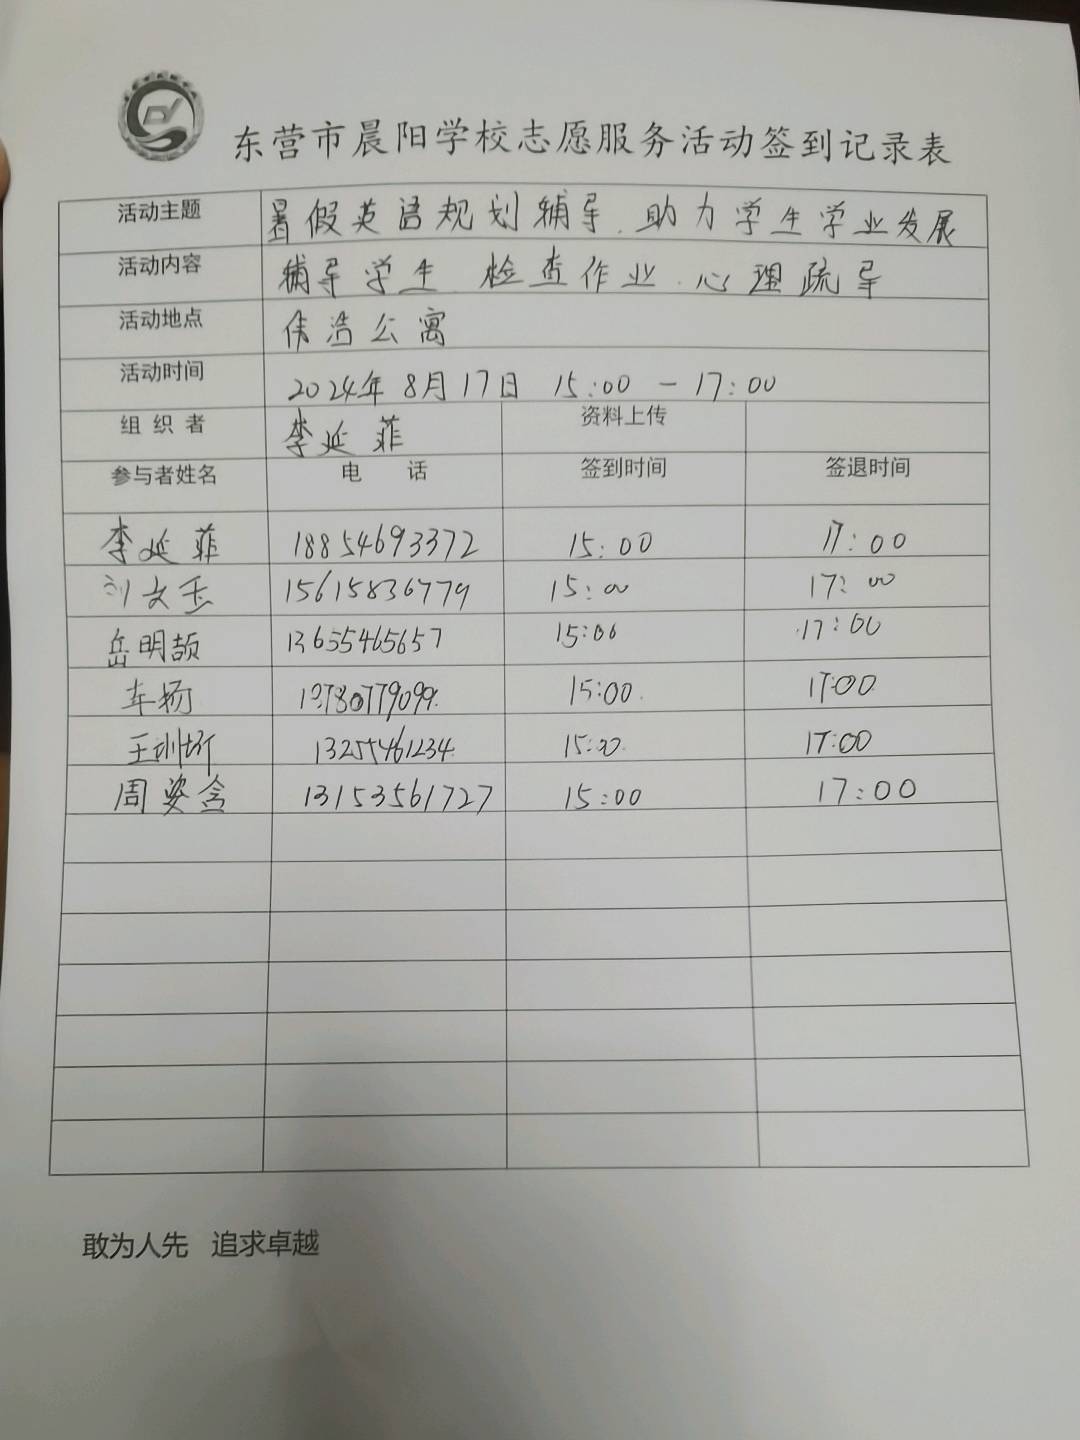 东营市晨阳学校志愿服务活动签到记录表
活动主题 暑假英语规划辅导.助力学生学业发展
活动内容 辅导学生 检查作业.心理疏导
活动地点 伟浩公寓
活动时间 2024年8月17日 15:00-17:00
组织者 李延菲 资料上传
参与者姓名 电话 签到时间 签退时间
李延菲 18854693372 15:00 17:00
刘文玉 15615836779 15:00 17:00
岳明颉 13655465657 15:00 17:00
车扬 15:00 17:00
王训圻 13255461234 15:00 17:00
周姿含 13153561727 15:00 17:00
敢为人先 追求卓越